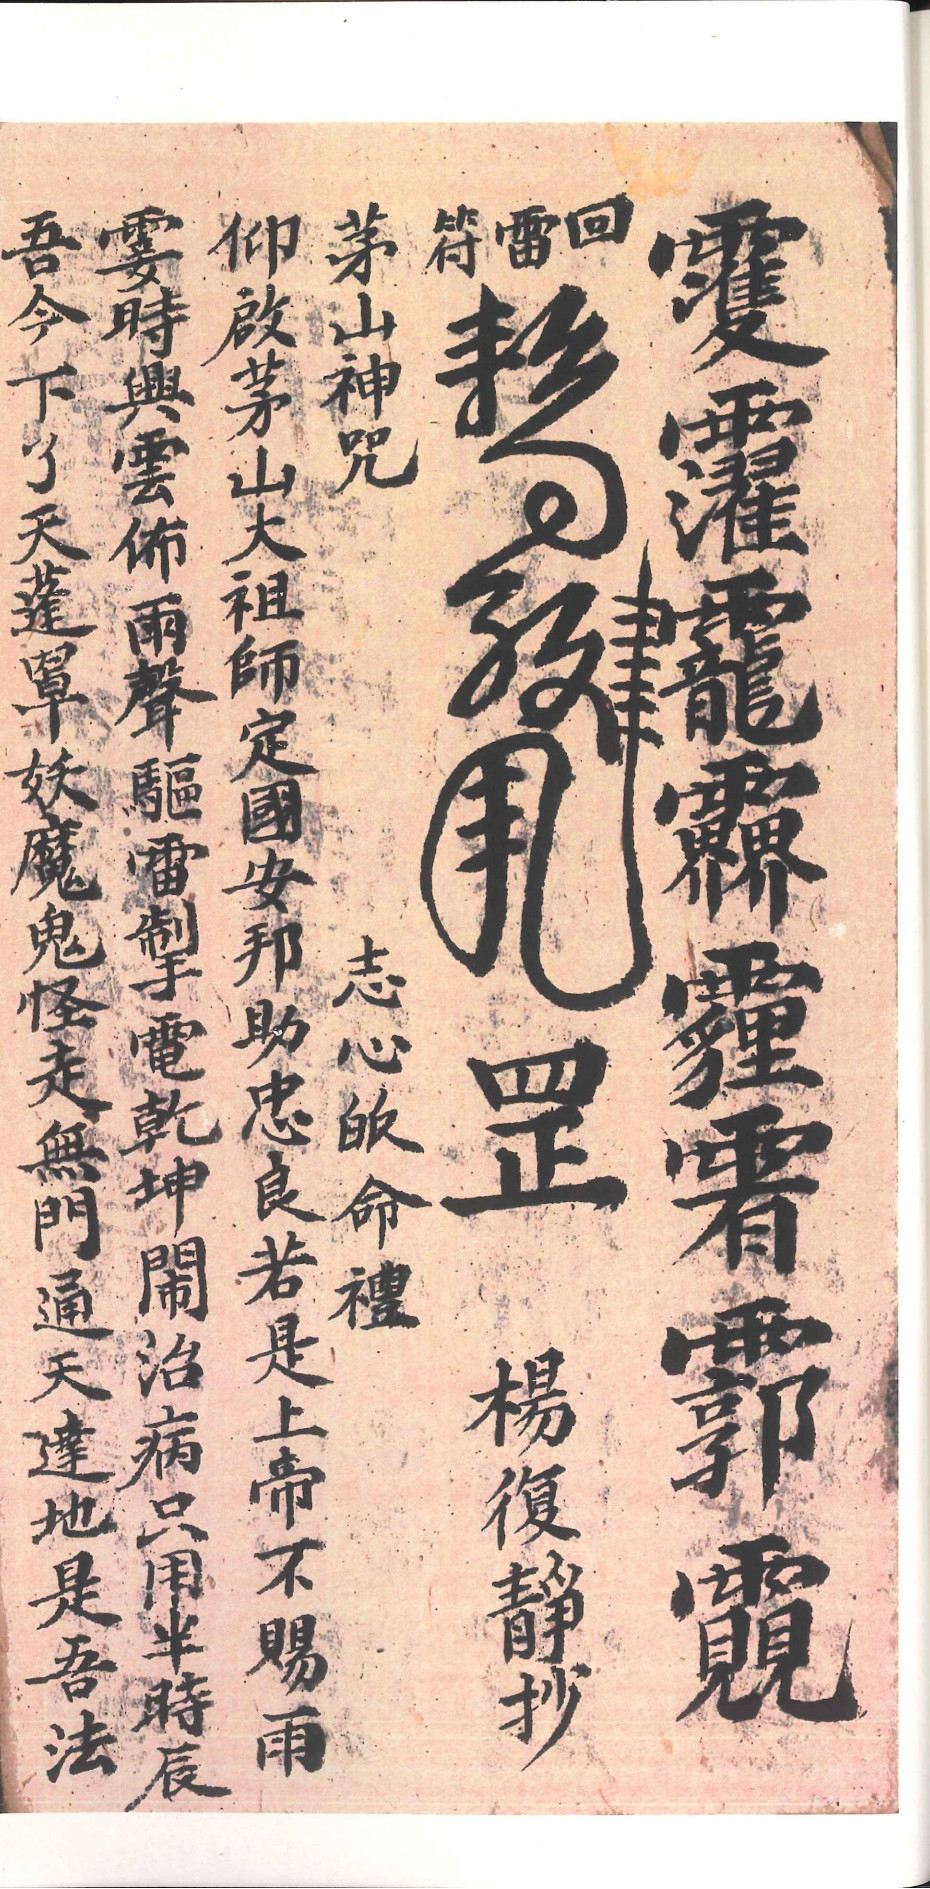 回雷符
罡
楊復靜抄
茅山神咒 志心皈命禮
仰啟茅山大祖師定國安邦助忠良若是上帝不賜雨
霎時興雲佈雨聲驅雷掣電乾坤鬧治病只用半時辰
吾今下了天蓬罩妖魔鬼怪走無門通天達地是吾法